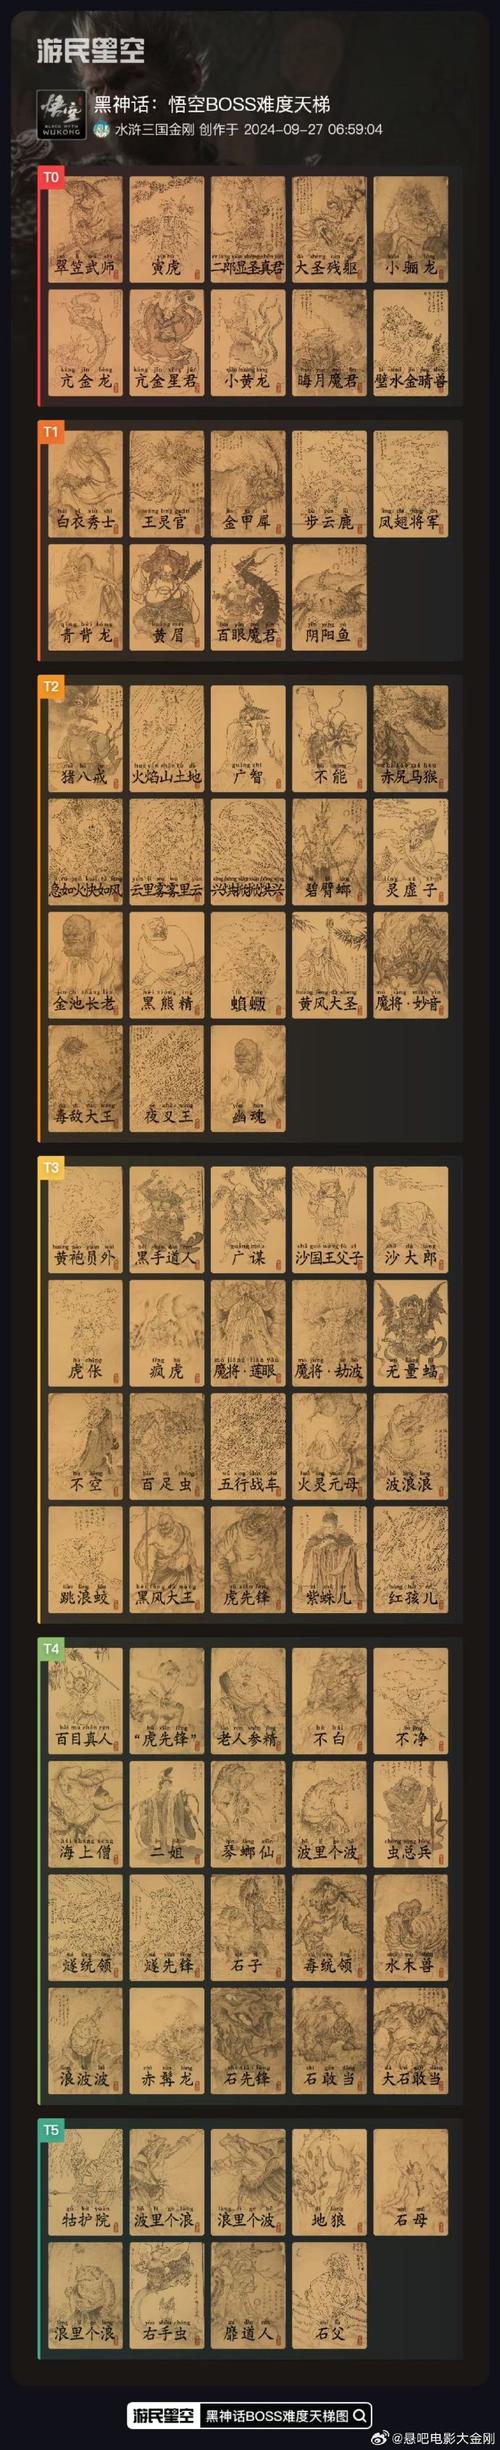 游民星空
黑神话：悟空BOSS难度天梯
水浒三国金刚 创作于 2024-09-27 06:59:04
悟空
BLACK MYTH
WUKONG
T0
翠笠武师 寅虎 二郎显圣真君 大圣残躯 小骊龙
亢金龙 亢金星君 小黄龙 晦月魔君 壁水金睛兽
T1
白衣秀士 王灵官 金甲犀 步云鹿 凤翅将军
青背龙 黄眉 百眼魔君 阴阳鱼
T2
猪八戒 火焰山土地 广智 不能 赤尻马猴
急如火快如风 云里雾雾里云 兴烘掀掀烘兴 碧臂螂 灵虚子
金池长老 黑熊精 蝜蝂 黄风大圣 魔将·妙音
毒敌大王 夜叉王 幽魂
T3
黄袍员外 黑手道人 广谋 沙国王父子 沙大郎
虎伥 疯虎 魔将·莲眼 魔将·劫波 无量蝠
不空 百足虫 五行战车 火灵元母 波浪浪
跳浪蛟 黑风大王 虎先锋 紫蛛儿 红孩儿
T4
百目真人 “虎先锋” 老人参精 不白 不净
海上僧 二姐 琴螂仙 波里个波 虫总兵
燧统领 燧先锋 石子 毒统领 水木兽
浪波波 赤髯龙 石先锋 石敢当 大石敢当
T5
牯护院 波里个浪 浪里个波 地狼 石母
浪里个浪 右手虫 靡道人 石父
游民星空 黑神话BOSS难度天梯图
@悬吧电影大金刚